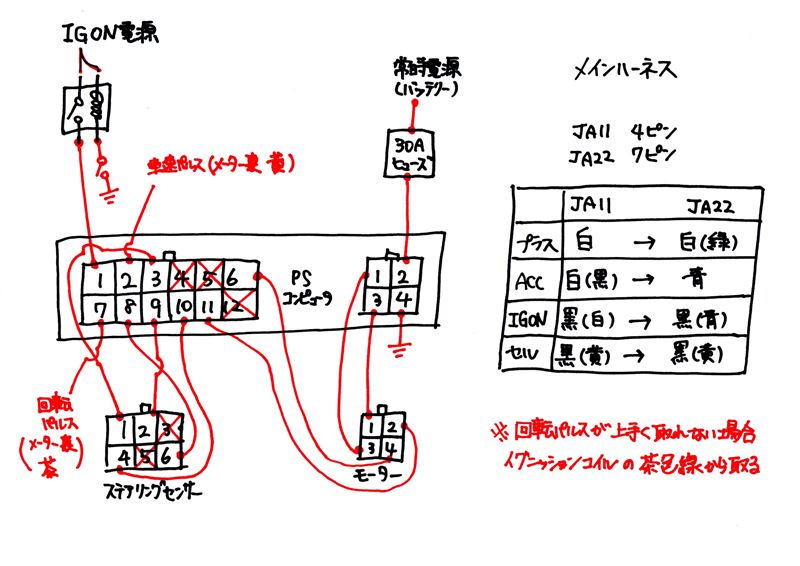 IGON電源
常時電源
(バッテリー)
30A
ヒューズ
車速パルス(メーター裏 黄)
1 2 3 4 5 6
7 8 9 10 11 12
PS
コンピュータ
1 2
3 4
回転
パルス
(メーター裏
茶)
1 2 3
4 5 6
ステアリングセンサー
1 2
3 4
モーター
メインハーネス
JA11 4ピン
JA22 7ピン
JA11 JA22
プラス 白 → 白(緑)
ACC 白(黒) → 青
IGON 黒(白) → 黒(青)
セル 黒(黄) → 黒(黄)
※回転パルスが上手く取れない場合
イグニッションコイルの茶色線から取る